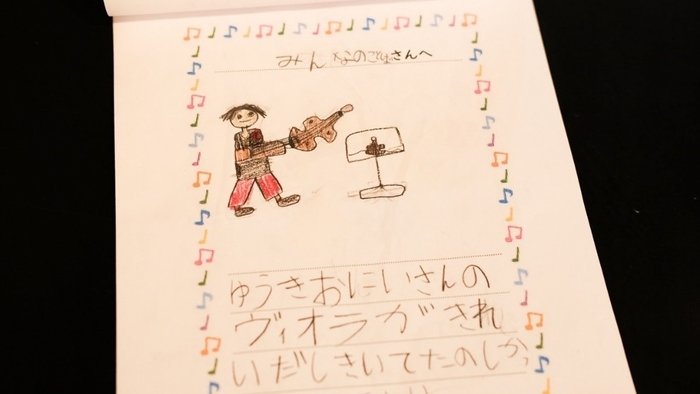 みんなのごうさんへ
ゆうきおにいさんの
ヴィオラがきれ
いだしきいてたのしかっ